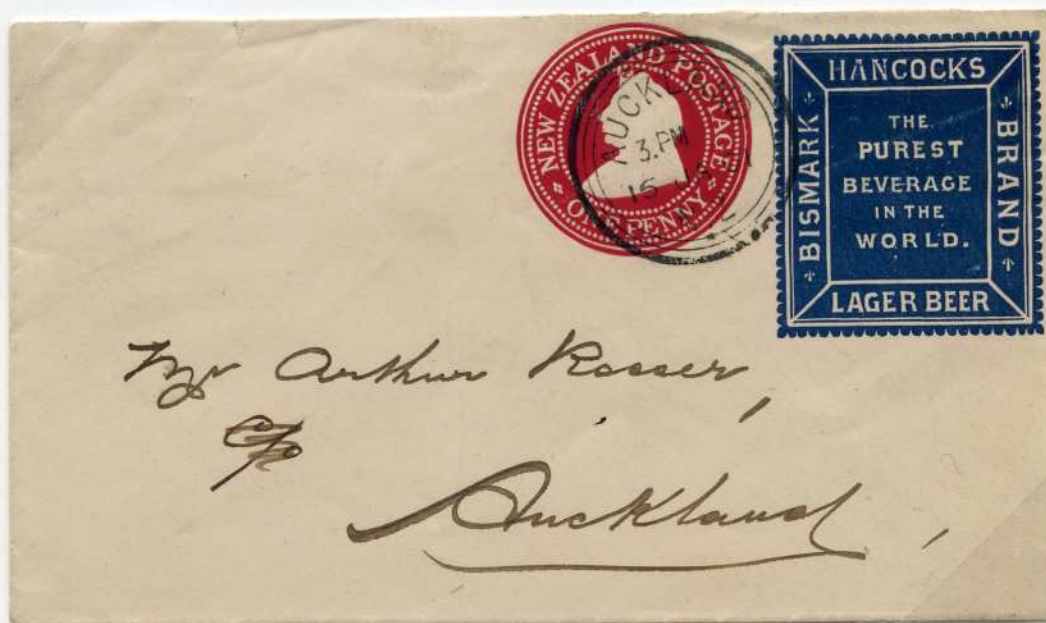 NEW ZEALAND POSTAGE
ONE PENNY
AUCKLAND
3.PM
15 JA
N.Z.
HANCOCKS
BISMARK
THE
PUREST
BEVERAGE
IN THE
WORLD.
BRAND
LAGER BEER
Mr Arthur Rosser,
c/o
Auckland,